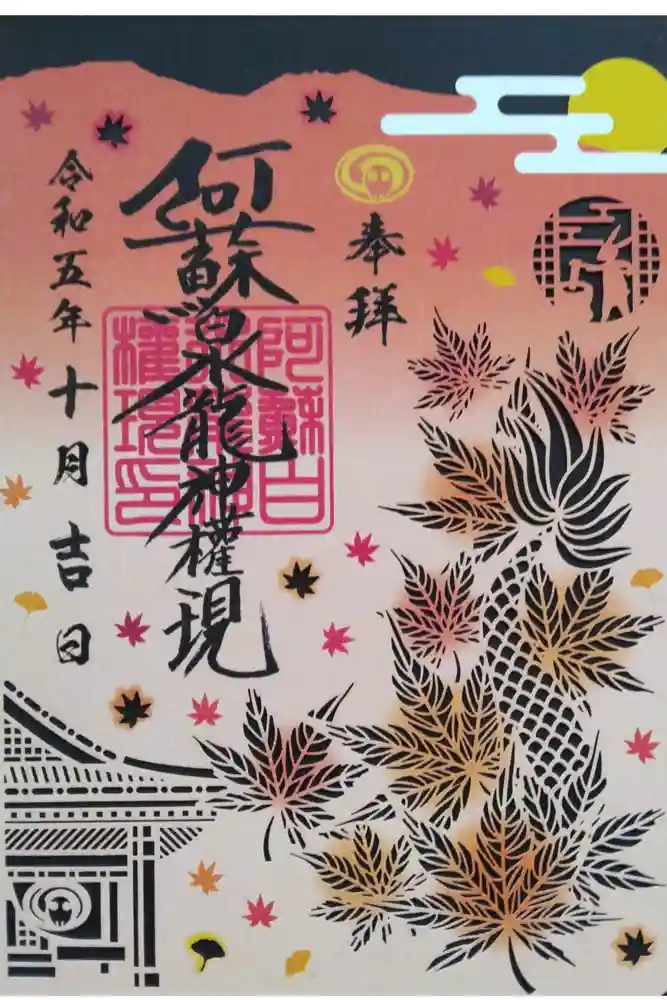 奉拝
阿蘇白水龍神權現
阿蘇白
水龍神
權現印
令和五年十月吉日